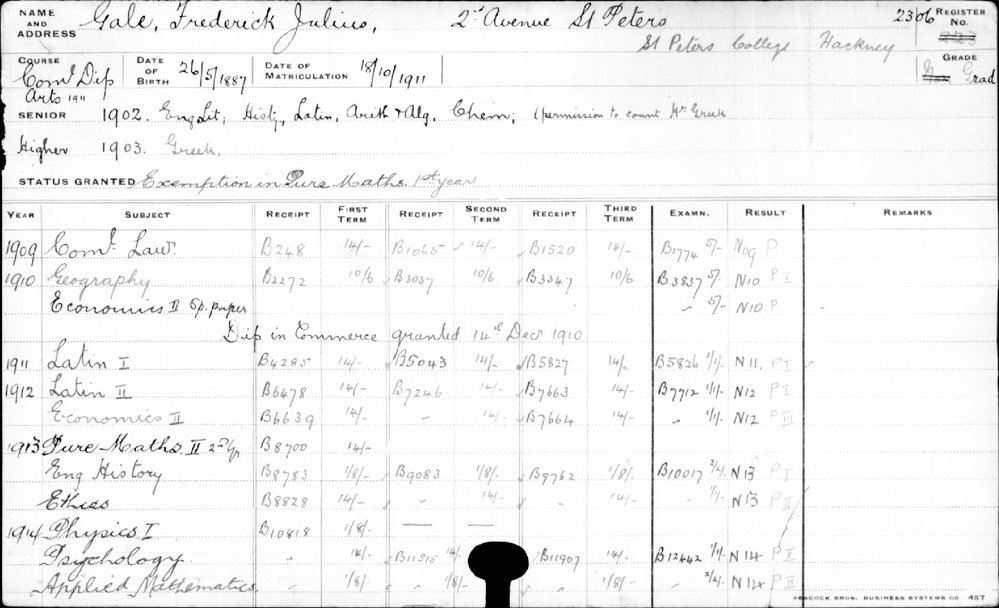 NAME AND ADDRESS Gale, Frederick Julius, 2nd Avenue St Peters 2306 REGISTER No. 223
St Peters College Hackney
COURSE Coml Dip DATE OF BIRTH 26/5/1887 DATE OF MATRICULATION 18/10/1911 GRADE Grad
Arts 1911
SENIOR 1902. Eng Lit; Histy, Latin, Arith & Alg, Chem; (permission to count Hr Greek
Higher 1903. Greek.
STATUS GRANTED Exemption in Pure Maths. 1st year
YEAR SUBJECT RECEIPT FIRST TERM RECEIPT SECOND TERM RECEIPT THIRD TERM EXAMN. RESULT REMARKS
1909 Coml. Law. B248 14/- B1065 14/- B1520 14/- B1774 5/- N09 P
1910 Geography B2272 10/6 B3037 10/6 B3347 10/6 B3837 5/- N10 P I
Economics II Sp. paper " 5/- N10 P
Dip in Commerce granted 14th Decr 1910
1911 Latin I B4285 14/- B5043 14/- B5827 14/- B5826 1/1/- N11. P I
1912 Latin II B6478 14/- B7246 14/- B7663 14/- B7712 1/1/- N12 P I
Economics II B6639 14/- " 14/- B7664 14/- " 1/1/- N12 P III
1913 Pure Maths II 2nd yr B8700 14/-
Eng History B8783 1/8/- B9083 1/8/- B9762 1/8/- B10017 2/2/- N13 P I
Ethics B8828 14/- " 14/- " 14/- " 1/1/- N13 P II
1914 Physics I B10818 1/8/- — —
Psychology " 14/- B11515 14/- B11907 14/- B12442 1/1/- N14 P II
Applied Mathematics " 1/8/- " 1/8/- " 1/8/- " 2/2/- N14 P II
PEACOCK BROS. BUSINESS SYSTEMS CO 457